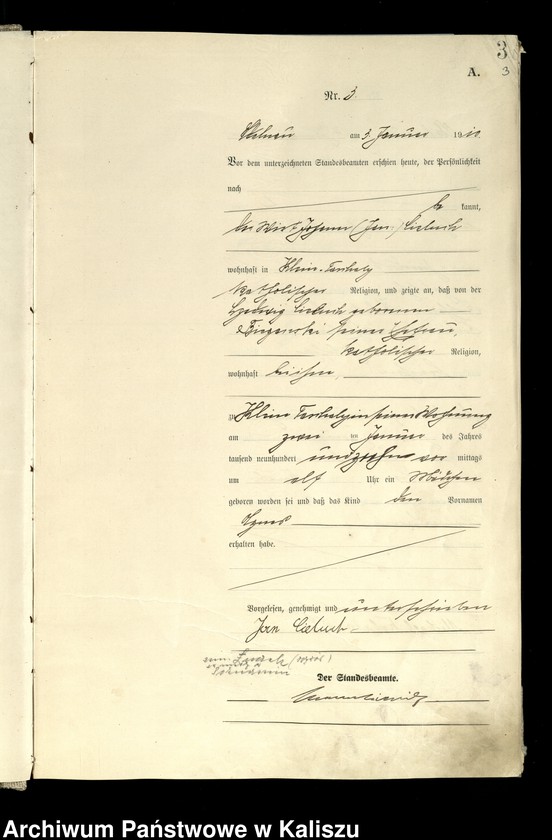 3
A.
3
Nr. 3
am 3. Januar 1910
Vor dem unterzeichneten Standesbeamten erschien heute, der Persönlichkeit
nach
be kannt,
der Wirt Johann (Jan)
wohnhaft in Klein-
katholischer Religion, und zeigte an, daß von der
Hedwig geborenen
seiner Ehefrau,
katholischer Religion,
wohnhaft bei ihm,
zu Klein in seiner Wohnung
am zwei ten Januar des Jahres
tausend neunhundert und zehn vor mittags
um elf Uhr ein Mädchen
geboren worden sei und daß das Kind den Vornamen
Agnes
erhalten habe.
Vorgelesen, genehmigt und unterschrieben
Jan
Der Standesbeamte.
Archiwum Państwowe w Kaliszu